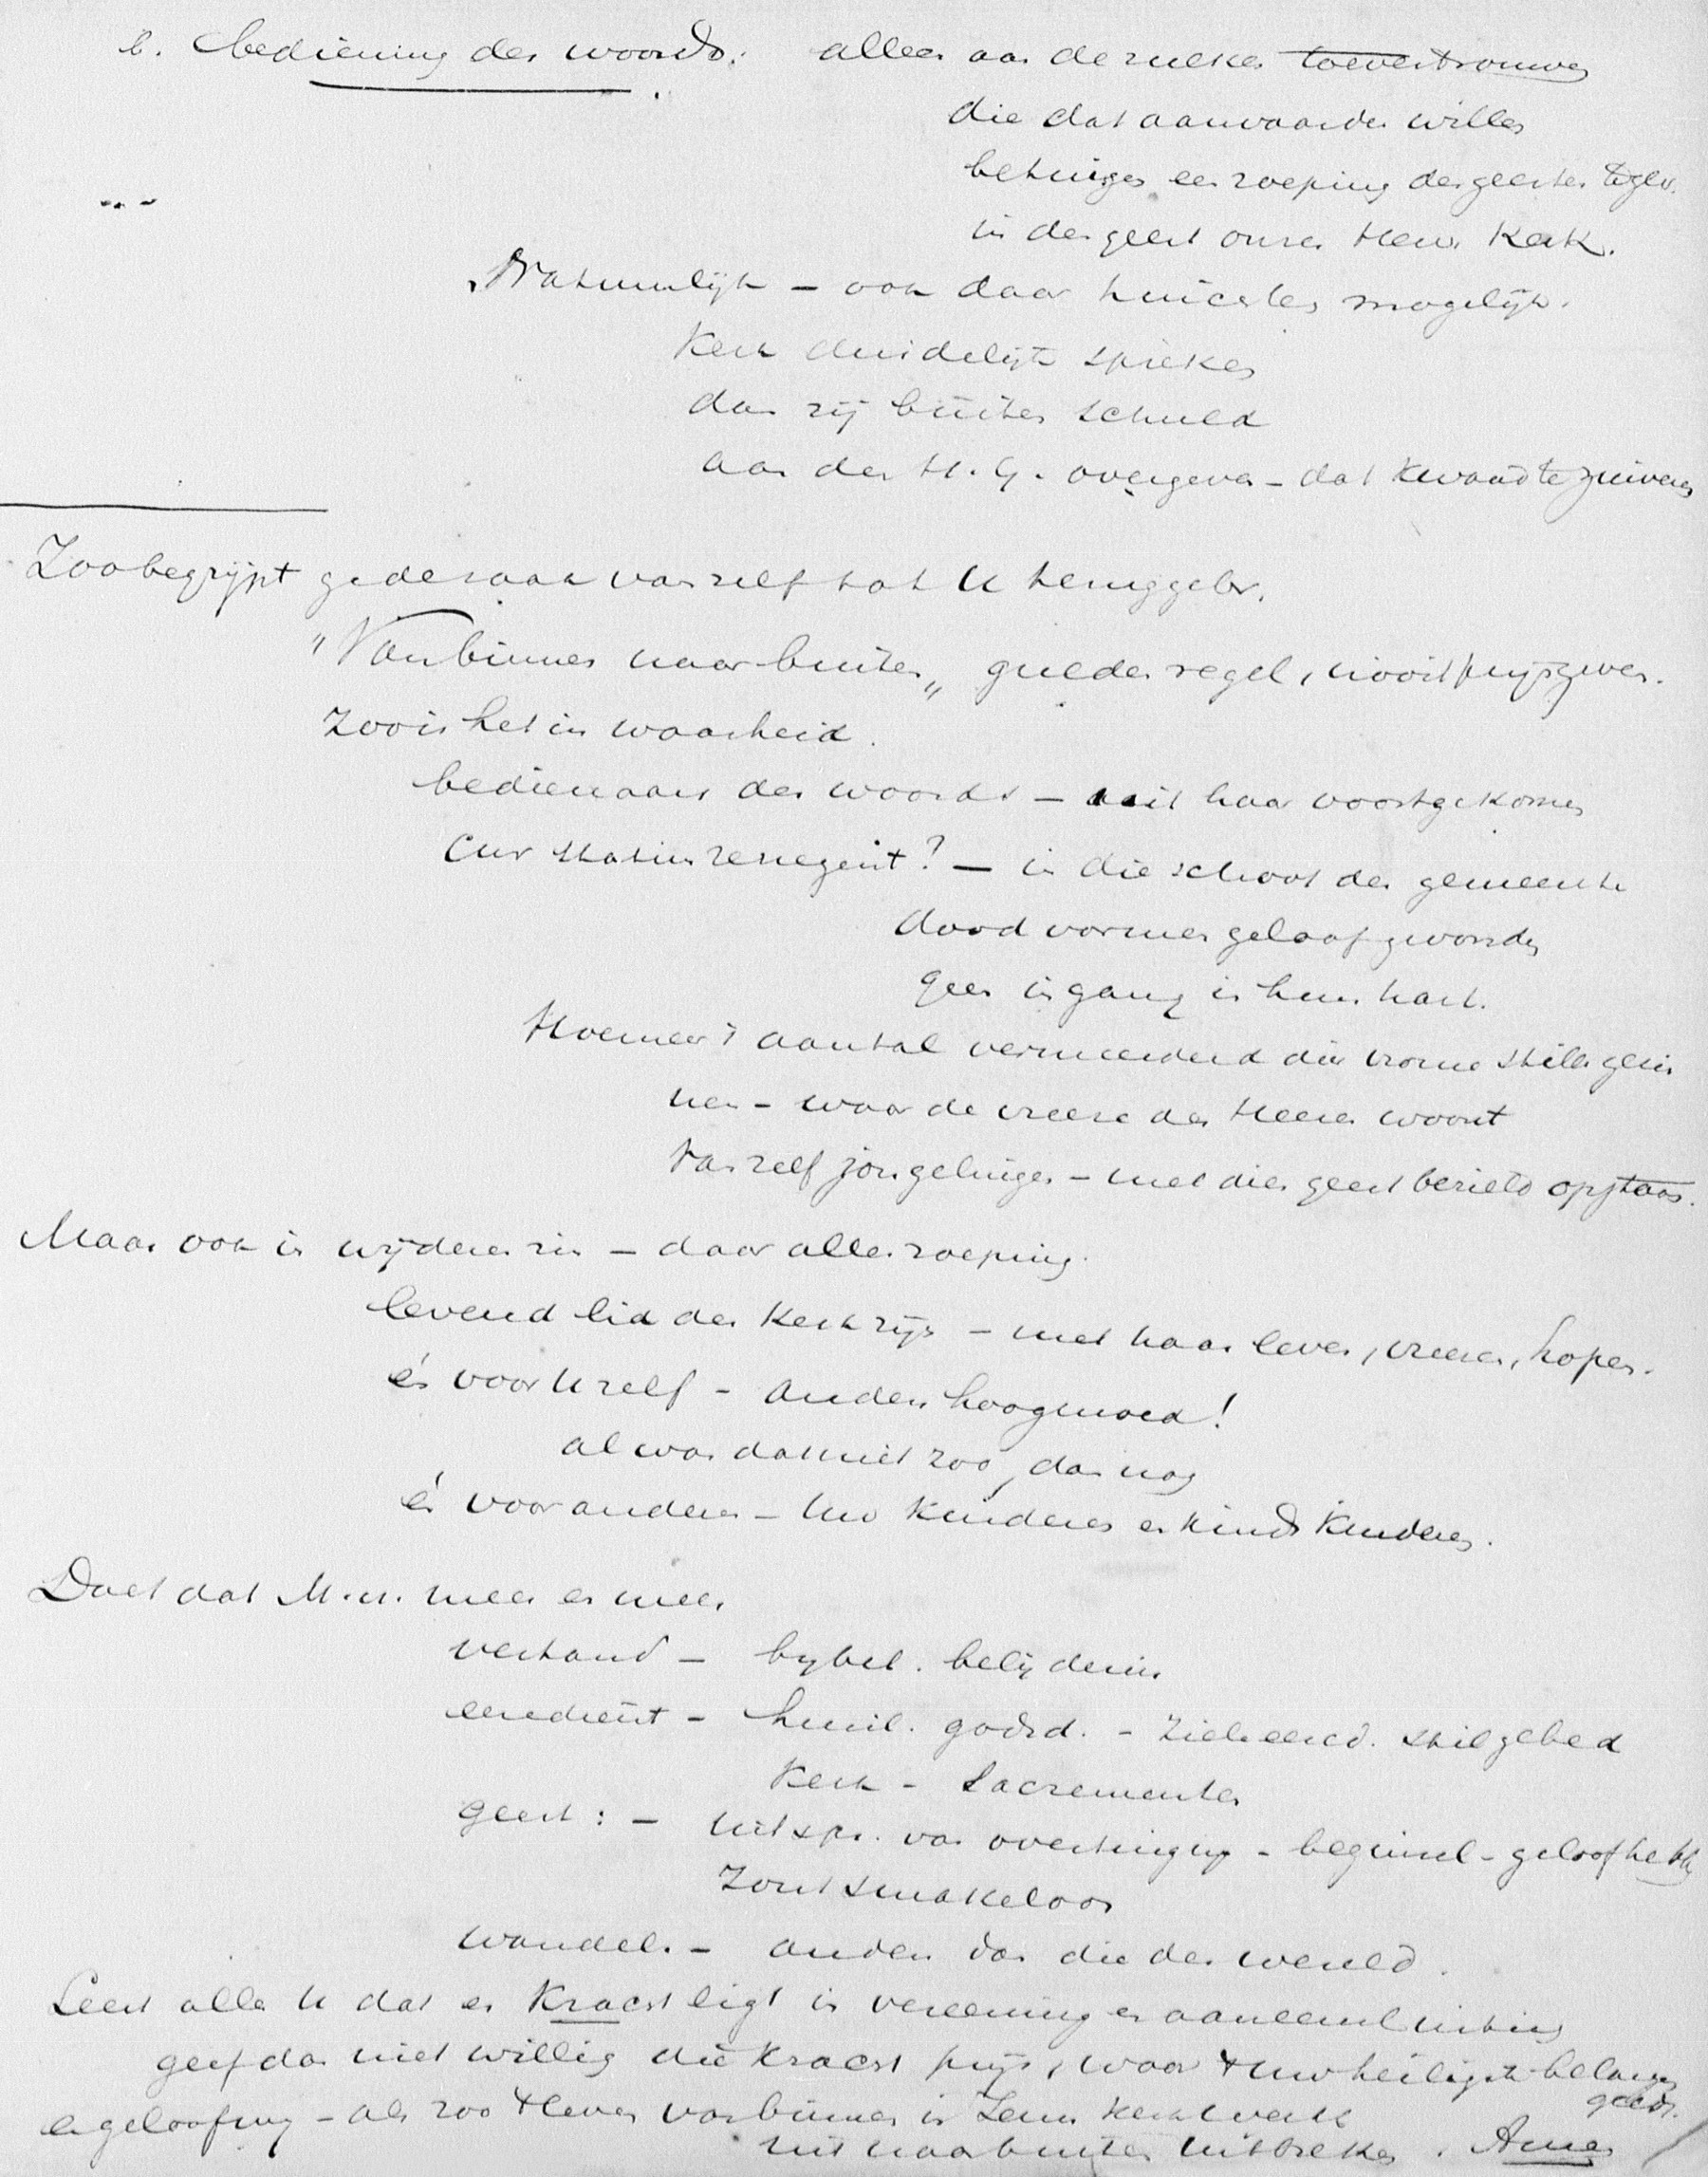 b. bediening des woords: alleen aan de zulken toevertrouwen
die dat aanvaarden willen
betuigen een roeping des geestes te gev.
in den geest onzer Herv. Kerk.
Natuurlijk – ook daar huichelen mogelijk.
Kerk duidelijk spreken
dan zij buiten schuld
aan den H. G. overgeven – dat kwaad te zuiveren
Zoo begrijpt ge de zaak van zelf tot U teruggebr.
"Van binnen naar buiten" gulden regel, nooit prijsgeven.
Zoo is het in waarheid.
bedienaars des woords – uit haar voortgekomen
in die schoot der gemeente
dood vormen geloof geworden
geen ingang in hun hart.
Hoe meer 't aantal vermeerderd dier vrome stille gezin
nen – waar de vreeze des Heeren woont
van zelf jongelingen – met dien geest bezield opstaan.
Maar ook in wijderen zin – daar aller roeping.
levend lid der Kerk zijn – met haar leven, vreezen, hopen.
én voor U zelf – anders hoogmoed!
al was dat niet zoo, dan nog
én voor anderen – Uw kinderen en kinds kinderen.
Doet dat M. H. meer en meer
verband – bybel. belijdenis
eeredienst – huisl. godsd. – stilgebed
Kerk – Sacramenten
geest: – uitspr. van overtuiging – beginsel – geloof hebb
Zout smakeloos
wandel. – anders dan die der wereld.
Leert allen U dat er Kracht ligt in vereeniging en aaneensluiting
geef dan niet willig die kracht prijs, waar 't uw heiligste belangen
geldt.
en geloof mij – als zoo 't leven van binnen is Zeun kerk werk
uit naar buiten uitbreken. Amen